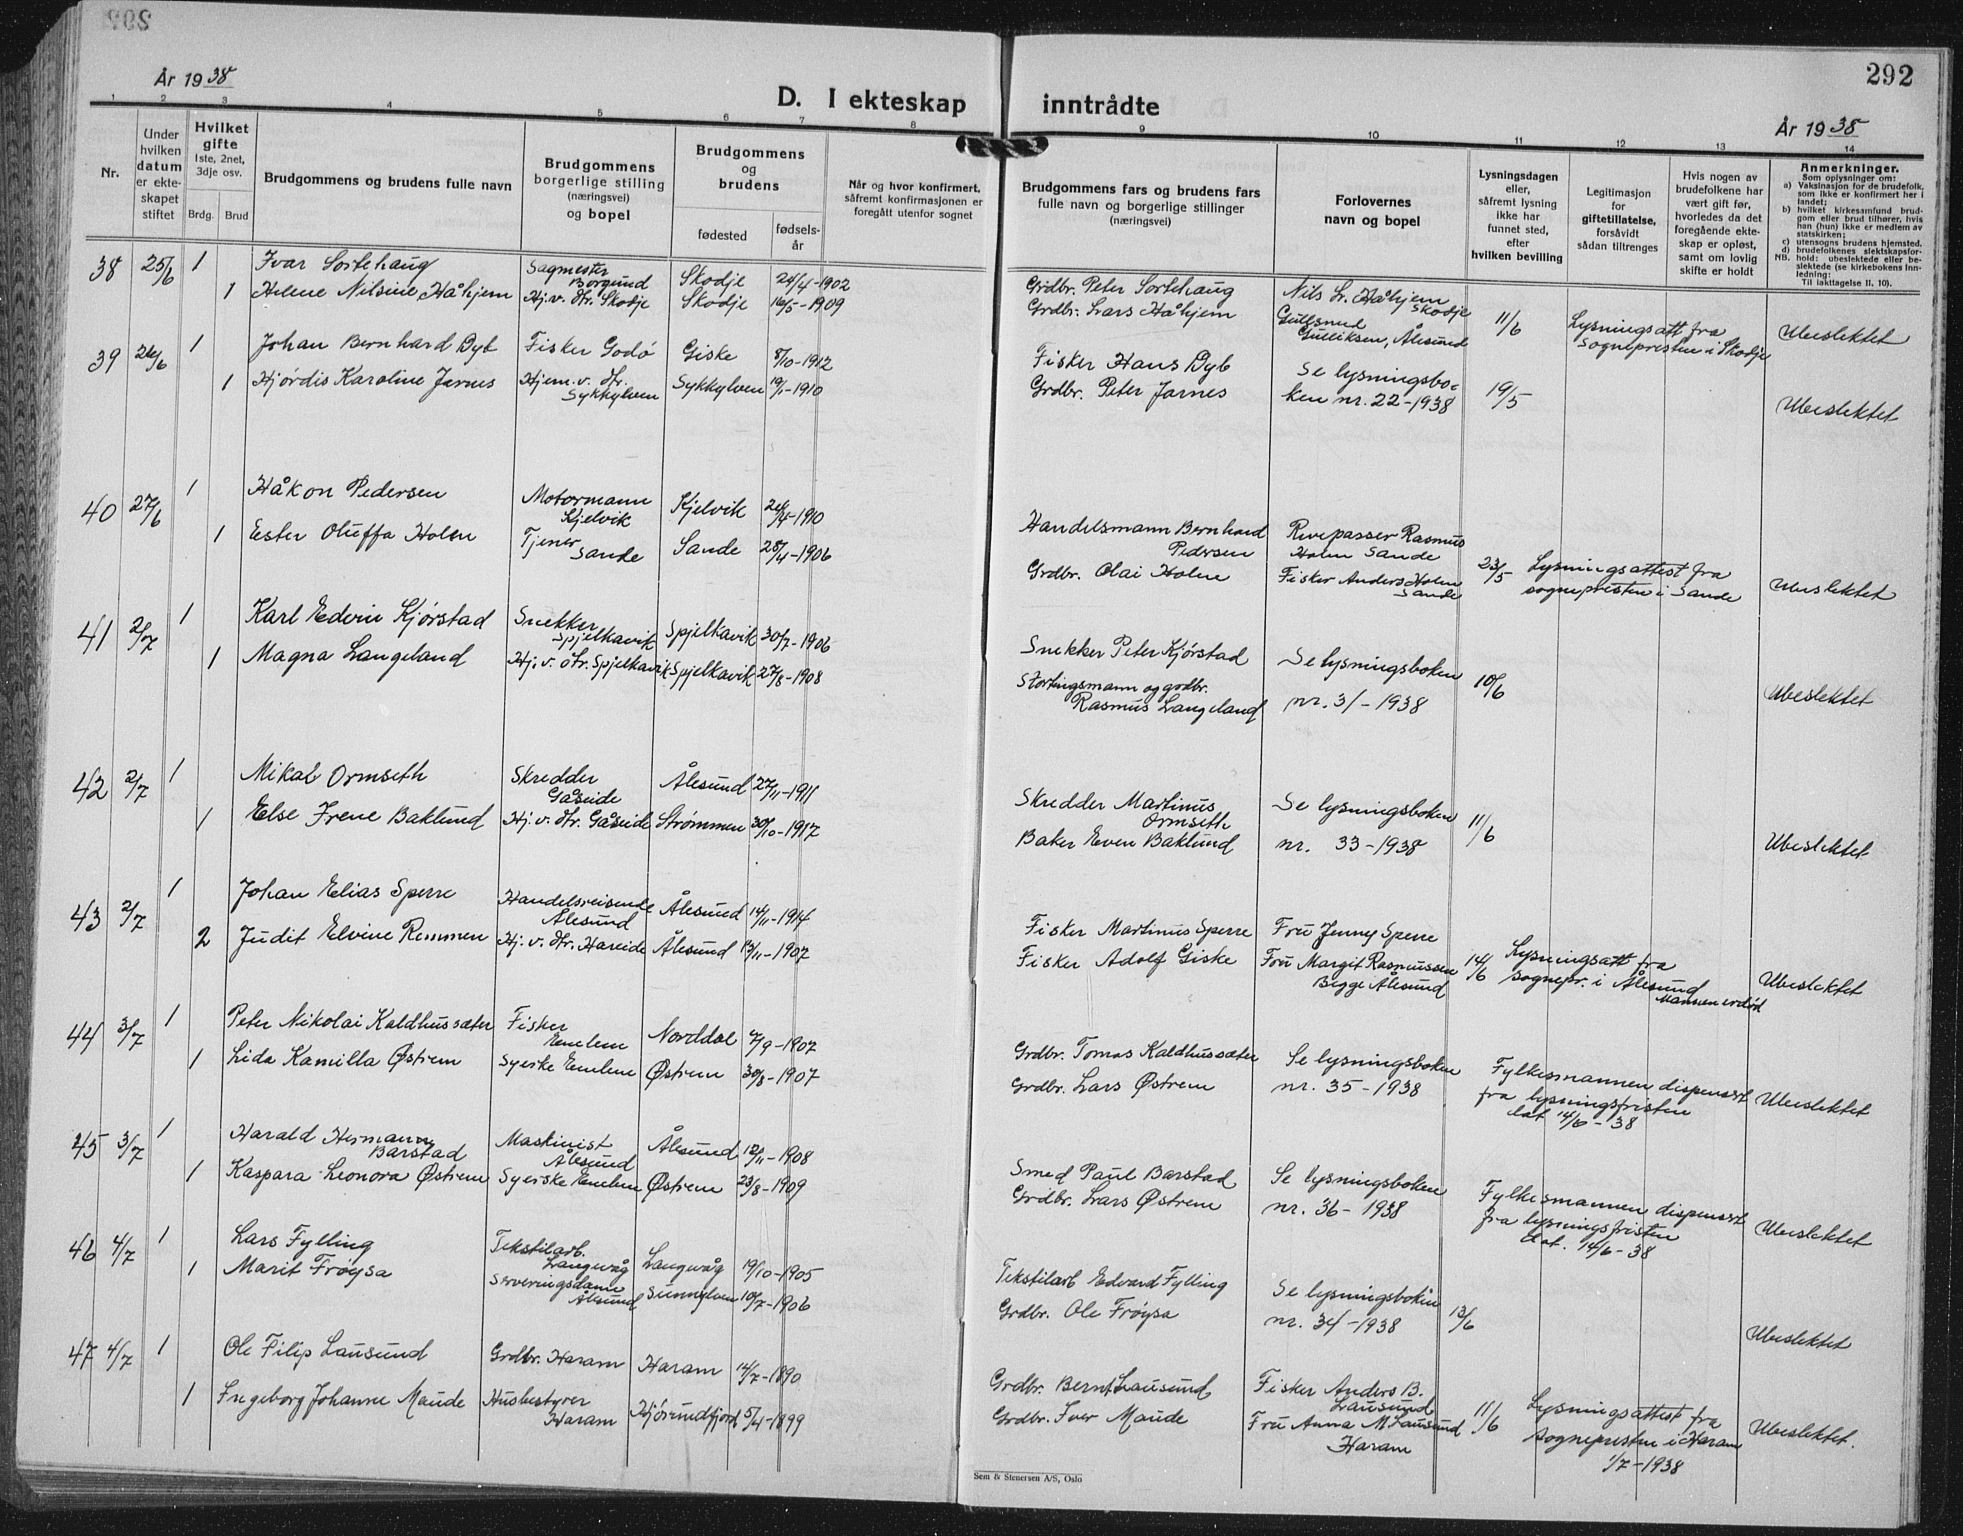 292
År 1938
D. I ekteskap inntrådte
År 1938
1 2 3 4 5 6 7 8 9 10 11 12 13 14
Nr.
Under hvilken datum er ekteskapet stiftet
Hvilket gifte 1ste, 2net, 3dje osv.
Brdg. Brud
Brudgommens og brudens fulle navn
Brudgommens borgerlige stilling (næringsvei) og bopel
Brudgommens og brudens
fødested
fødselsår
Når og hvor konfirmert, såfremt konfirmasjonen er foregått utenfor sognet
Brudgommens fars og brudens fars fulle navn og borgerlige stillinger (næringsvei)
Forlovernes navn og bopel
Lysningsdagen eller, såfremt lysning ikke har funnet sted, efter hvilken bevilling
Legitimasjon for giftetillatelse, forsåvidt sådan tiltrenges
Hvis nogen av brudefolkene har vært gift før, hvorledes da det foregående ekteskap er opløst, samt om lovlig skifte er holdt
Anmerkninger.
Som oplysninger om:
a) Vaksinasjon for de brudefolk, som ikke er konfirmert her i landet;
b) hvilket kirkesamfund brudgom eller brud tilhører, hvis han (hun) ikke er medlem av statskirken;
c) utensogns brudens hjemsted.
d) brudefolkenes slektskapsforhold: ubeslektede eller beslektede (se kirkebokens innledning:
NB.
Til iakttagelse II. 10).
38 25/6 1 Ivar Sortehaug Sagmester Borgund Skodje 24/4-1902 Grdbr. Peter Sortehaug Nils L. Håhjem Skodje
1 Helene Nilsine Håhjem Hj. v. dtr. Skodje Skodje 16/5-1909 Grdbr. Lars Håhjem Gullsnud Gulliksen, Ålesund 11/6 Lysningsatt fra sognepresten i Skodje Ubeslektet
39 26/6 1 Johan Bernhard Dyb Fisker Godø Giske 8/10-1912 Fisker Hans Dyb Se lysningsbo-
1 Hjørdis Karoline Jarnes Hjem. v. dtr. Sykkylven Sykkylven 19/1-1910 Grdbr. Peter Jarnes ken nr. 22-1938 19/5 Ubeslektet
40 27/6 1 Håkon Pedersen Motormann Kjelvik Kjelvik 24/4-1910 Handelsmann Bernhard Pedersen Revepasser Rasmus Holm Sande
1 Ester Oluffa Holen Tjener Sande Sande 28/4-1906 Grdbr. Olai Holen Fisker Anders Holen Sande 23/5 Lysningsattest fra sognepresten i Sande Ubeslektet
41 2/7 1 Karl Edvin Kjørstad Snekker Spjelkavik Spjelkavik 30/7-1906 Snekker Peter Kjørstad Se lysningsboken
1 Magna Langeland Hj. v. dtr. Spjelkavik Spjelkavik 27/8-1908 Stortingsmann og grdbr. Rasmus Langeland nr. 31-1938 10/6 Ubeslektet
42 2/7 1 Mikal Ormseth Skredder Gåseide Ålesund 27/11-1911 Skredder Martinus Ormseth Se lysningsboken
1 Else Irene Baklund Hj. v. dtr. Gåseide Strømmen 30/10-1917 Baker Even Baklund nr. 33-1938 11/6 Ubeslektet
43 2/7 1 Johan Elias Sperre Handelsreisende Ålesund Ålesund 14/11-1914 Fisker Martinus Sperre Fru Jenny Sperre
2 Judit Elvine Remmen Hj. v. dtr. Hareide Ålesund 12/11-1907 Fisker Adolf Giske Fru Margit Rasmussen Begge Ålesund 14/6 Lysningsatt fra sognepr. i Ålesund Mannen er død Ubeslektet
44 3/7 1 Peter Nikolai Kaldhussæter Fisker Emlem Norddal 7/9-1907 Grdbr. Tomas Kaldhussæter Se lysningsboken
1 Lida Kamilla Østrem Syerske Emlem Østrem 30/8-1907 Grdbr. Lars Østrem nr. 35-1938 Fylkesmannen dispensert fra lysningsfristen dat. 14/6-38 Ubeslektet
45 3/7 1 Harald Hermann Barstad Maskinist Ålesund Ålesund 12/11-1908 Smed Paul Barstad Se lysningsboken
1 Kaspara Leonora Østrem Syerske Emlem Østrem 23/8-1909 Grdbr. Lars Østrem nr. 36-1938 Fylkesmannen dispensert fra lysningsfristen dat. 14/6-38 Ubeslektet
46 4/7 1 Lars Fylling Tekstilarb. Langevåg Langevåg 19/10-1905 Tekstilarb Edvard Fylling Se lysningsboken
1 Marit Frøysa Serveringsdame Ålesund Sunnylven 10/7-1906 Grdbr. Ole Frøysa nr. 34-1938 13/6 Ubeslektet
47 4/7 1 Ole Filip Lausund Grdbr. Haram Haram 14/7-1890 Grdbr. Bernt Lausund Fisker Anders B. Lausund
1 Ingeborg Johanne Maude Husbestyrer Haram Hjørundfjord 5/4-1899 Grdbr. Iver Maude Fru Anna M Lausund Haram 11/6 Lysningsattest fra sognepresten i Haram 1/7-1938 Ubeslektet.
Sem & Stenersen A/S, Oslo